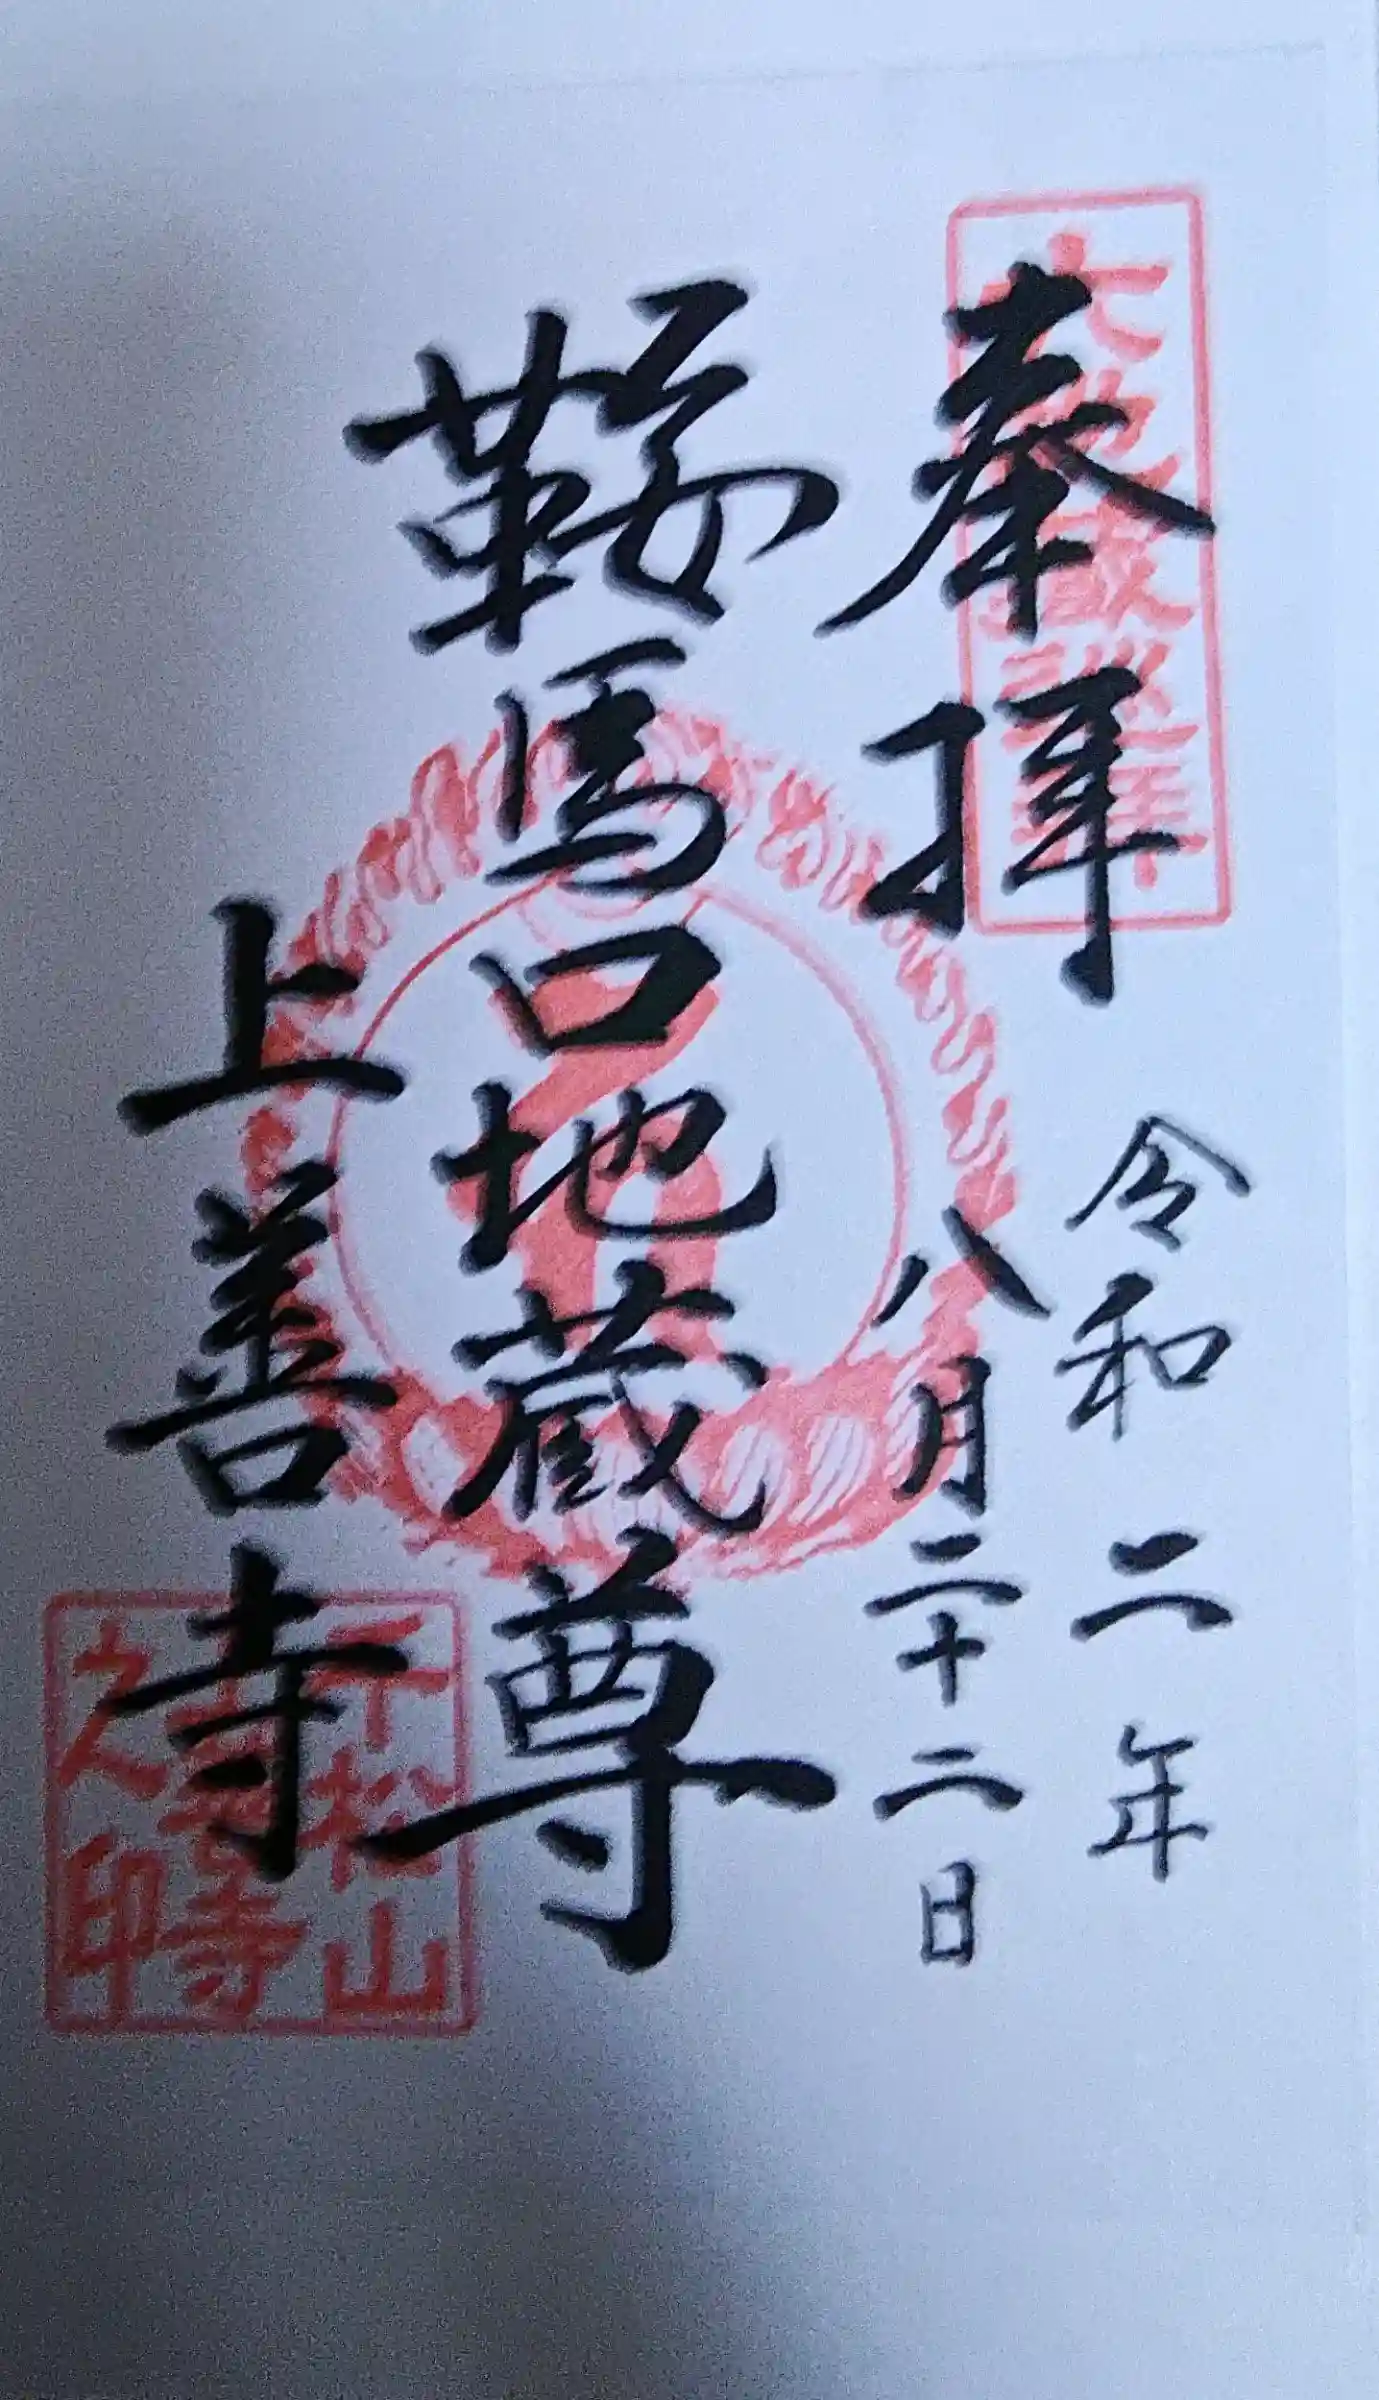 奉拝
令和二年
八月二十二日
鞍馬口地蔵尊
上善寺
千松山
上善寺
之印